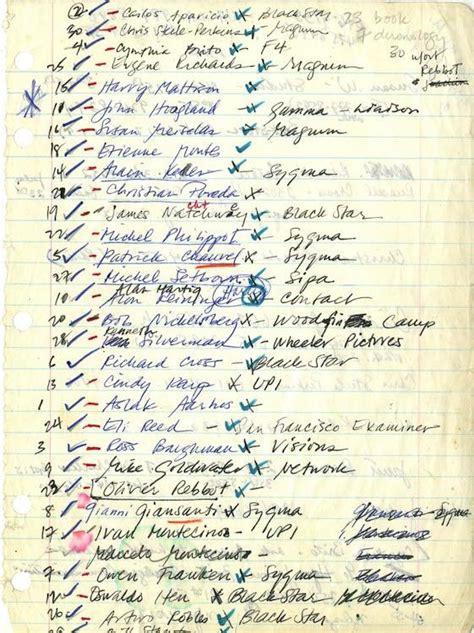 2 ✓ - Carlos Aparicio x BlackStar 23 book
30 ✓ - Chris Stele-Perkins x Magnum 7 chronology
4 ✓ - Cynthia Brito x F4 30
25 ✓ - Eugene Richards x Magnum Rebbot
15 ✓ - Harry Mattison x
10 ✓ - John Hoagland x Gamma - Liaison
16 ✓ - Susan Meiselas x Magnum
18 ✓ - Etienne Montes ✓
14 ✓ - Alain Keler ✓ Sygma
✓ - Christian Poveda x
19 ✓ - James Natchwey x Black Star
22 ✓ Michel Philippot x - Sygma
5 ✓ - Patrick Chauvel x - Sygma
27 ✓ - Michel x - Sipa
Alan Hartig
10 ✓ - Alon Reininger x Contact
20 ✓ - Bob Nickelsberg x - Woodfin Camp
Kenneth
28 ✓ - Silverman x - Wheeler Pictures
6 ✓ Richard Cross - Black Star
13 ✓ - Cindy Karp x UPI
1 ✓ - Aslak Aarhus x
24 ✓ - Eli Reed - San Francisco Examiner
3 ✓ - Ross Baughman x Visions
9 ✓ - Mike Goldwater x Network
23 ✓ Olivier Rebbot x -
8 ✓ Gianni Giansanti x Sygma
17 ✓ Ivan Montecinos - UPI
✓ Marcelo Montecinos
7 ✓ - Owen Franken x - Sygma
12 ✓ - Osvaldo x - Black Star
26 ✓ - Arturo Robles x Black Star